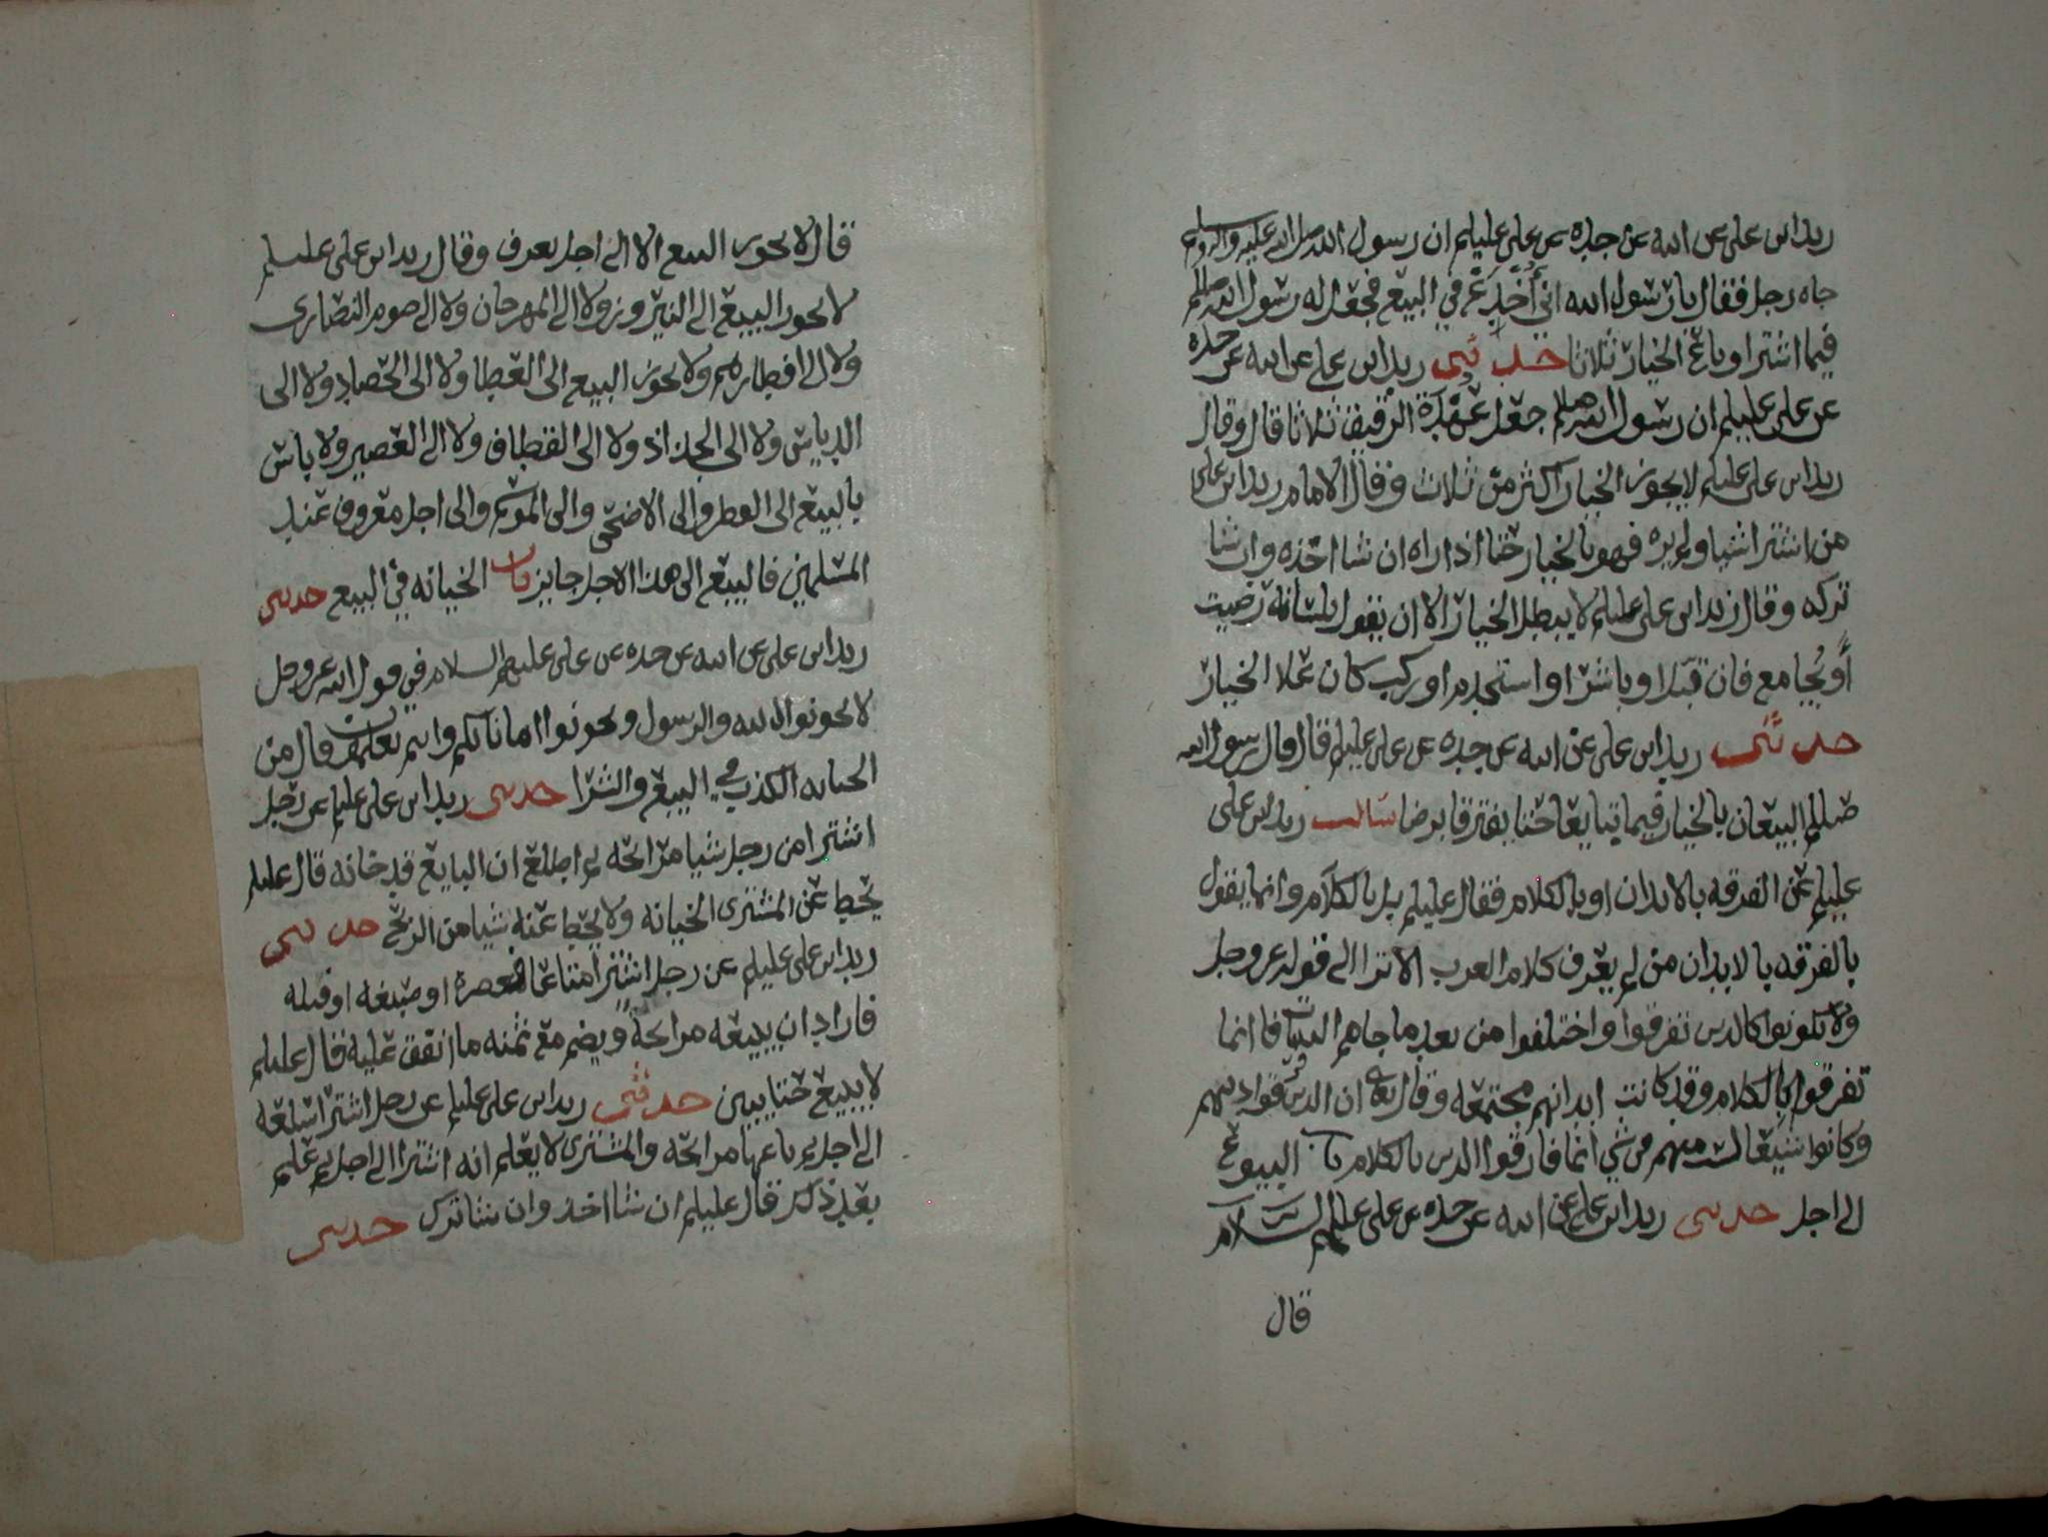 زيد ابن علي عن ابيه عن جده عن علي عليلم ان رسول الله صلى الله عليه واله وسلم
جاه رجل فقال يا رسول الله اني أُخدَع في البيع فجعل له رسول الله صللم
فيما اشترا وباع الخيار ثلاثا حدثني زيد ابن علي عن ابيه عن جده
عن علي عليلم ان رسول الله صللم جعل عهدة الرقيق ثلاثا قال وقال
زيد ابن علي عليلم لا يجوز الخيار اكثر من ثلاث وقال الامام زيد ابن علي
من اشترا شيا ولم يره فهو بالخيار حتا اذا راه ان شا اخذه وان شا
تركه وقال زيد ابن علي عليلم لا يبطل الخيار الا ان يقول بلسانه رضيت
أو يُجامع فان قبلا وباشر او استخدم او ركب كان علا الخيار
حدثني زيد ابن علي عن ابيه عن جده عن علي عليلم قال قال رسول الله
صللم البيعان بالخيار فيما تبايعا حتا يفترقا برضا سالت زيد ابن علي
عليلم عن الفرقه بالابدان او بالكلام فقال عليلم بل بالكلام وانما يقول
بالفرقه بالابدان من لم يعرف كلام العرب الا ترا الى قوله عز وجل
ولا تكونوا كالذين تفرقوا واختلفوا من بعد ما جاهم البينات فانما
تفرقوا بالكلام وقد كانت ابدانهم مجتمعه وقال تعالى ان الذين فرقوا دينهم
وكانوا شيعا لست منهم في شي انما فارقوا الدين بالكلام باب البيوع
الى اجل حدثني زيد ابن علي عن ابيه عن جده عن علي عليهم السلام
قال
قال لا يجوز البيع الا الى اجل يعرف وقال زيد ابن علي عليلم
لا يجوز البيع الى النيروز ولا الى المهرجان ولا الى صوم النصارى
ولا الى افطارهم ولا يجوز البيع الى العطا ولا الى الحصاد ولا الى
الدياس ولا الى الجذاذ ولا الى القطاف ولا الى العصير ولا باس
بالبيع الى الفطر والى الاضحى والى الموسم والى اجل معروف عند
المسلمين فالبيع الى هذا الاجل جايز باب الخيانه في البيع حدثني
زيد ابن علي عن ابيه عن جده عن علي عليهم السلام في قول الله عز وجل
لا تخونوا الله والرسول وتخونوا اماناتكم وانتم تعلمون قال من
الخيانه الكذب في البيع والشرا حدثني زيد ابن علي عليلم عن رجل
اشترا من رجل شيا مرابحه ثم اطلع ان البايع قد خانه قال عليلم
يحط عن المشتري الخيانه ولا يحط عنه شيا من الربح حدثني
زيد ابن علي عليلم عن رجل اشترا متاعا فقصره او صبغه او فتله
فاراد ان يبيعه مرابحة ويضم مع ثمنه ما انفق عليه قال عليلم
لا يبيع حتا يبين حدثني زيد ابن علي عليلم عن رجل اشترا سلعه
الى اجل ثم باعها مرابحه والمشتري لا يعلم انه اشترا الى اجل ثم علم
بعد ذلك قال عليلم ان شا اخذ وان شا ترك حدثني